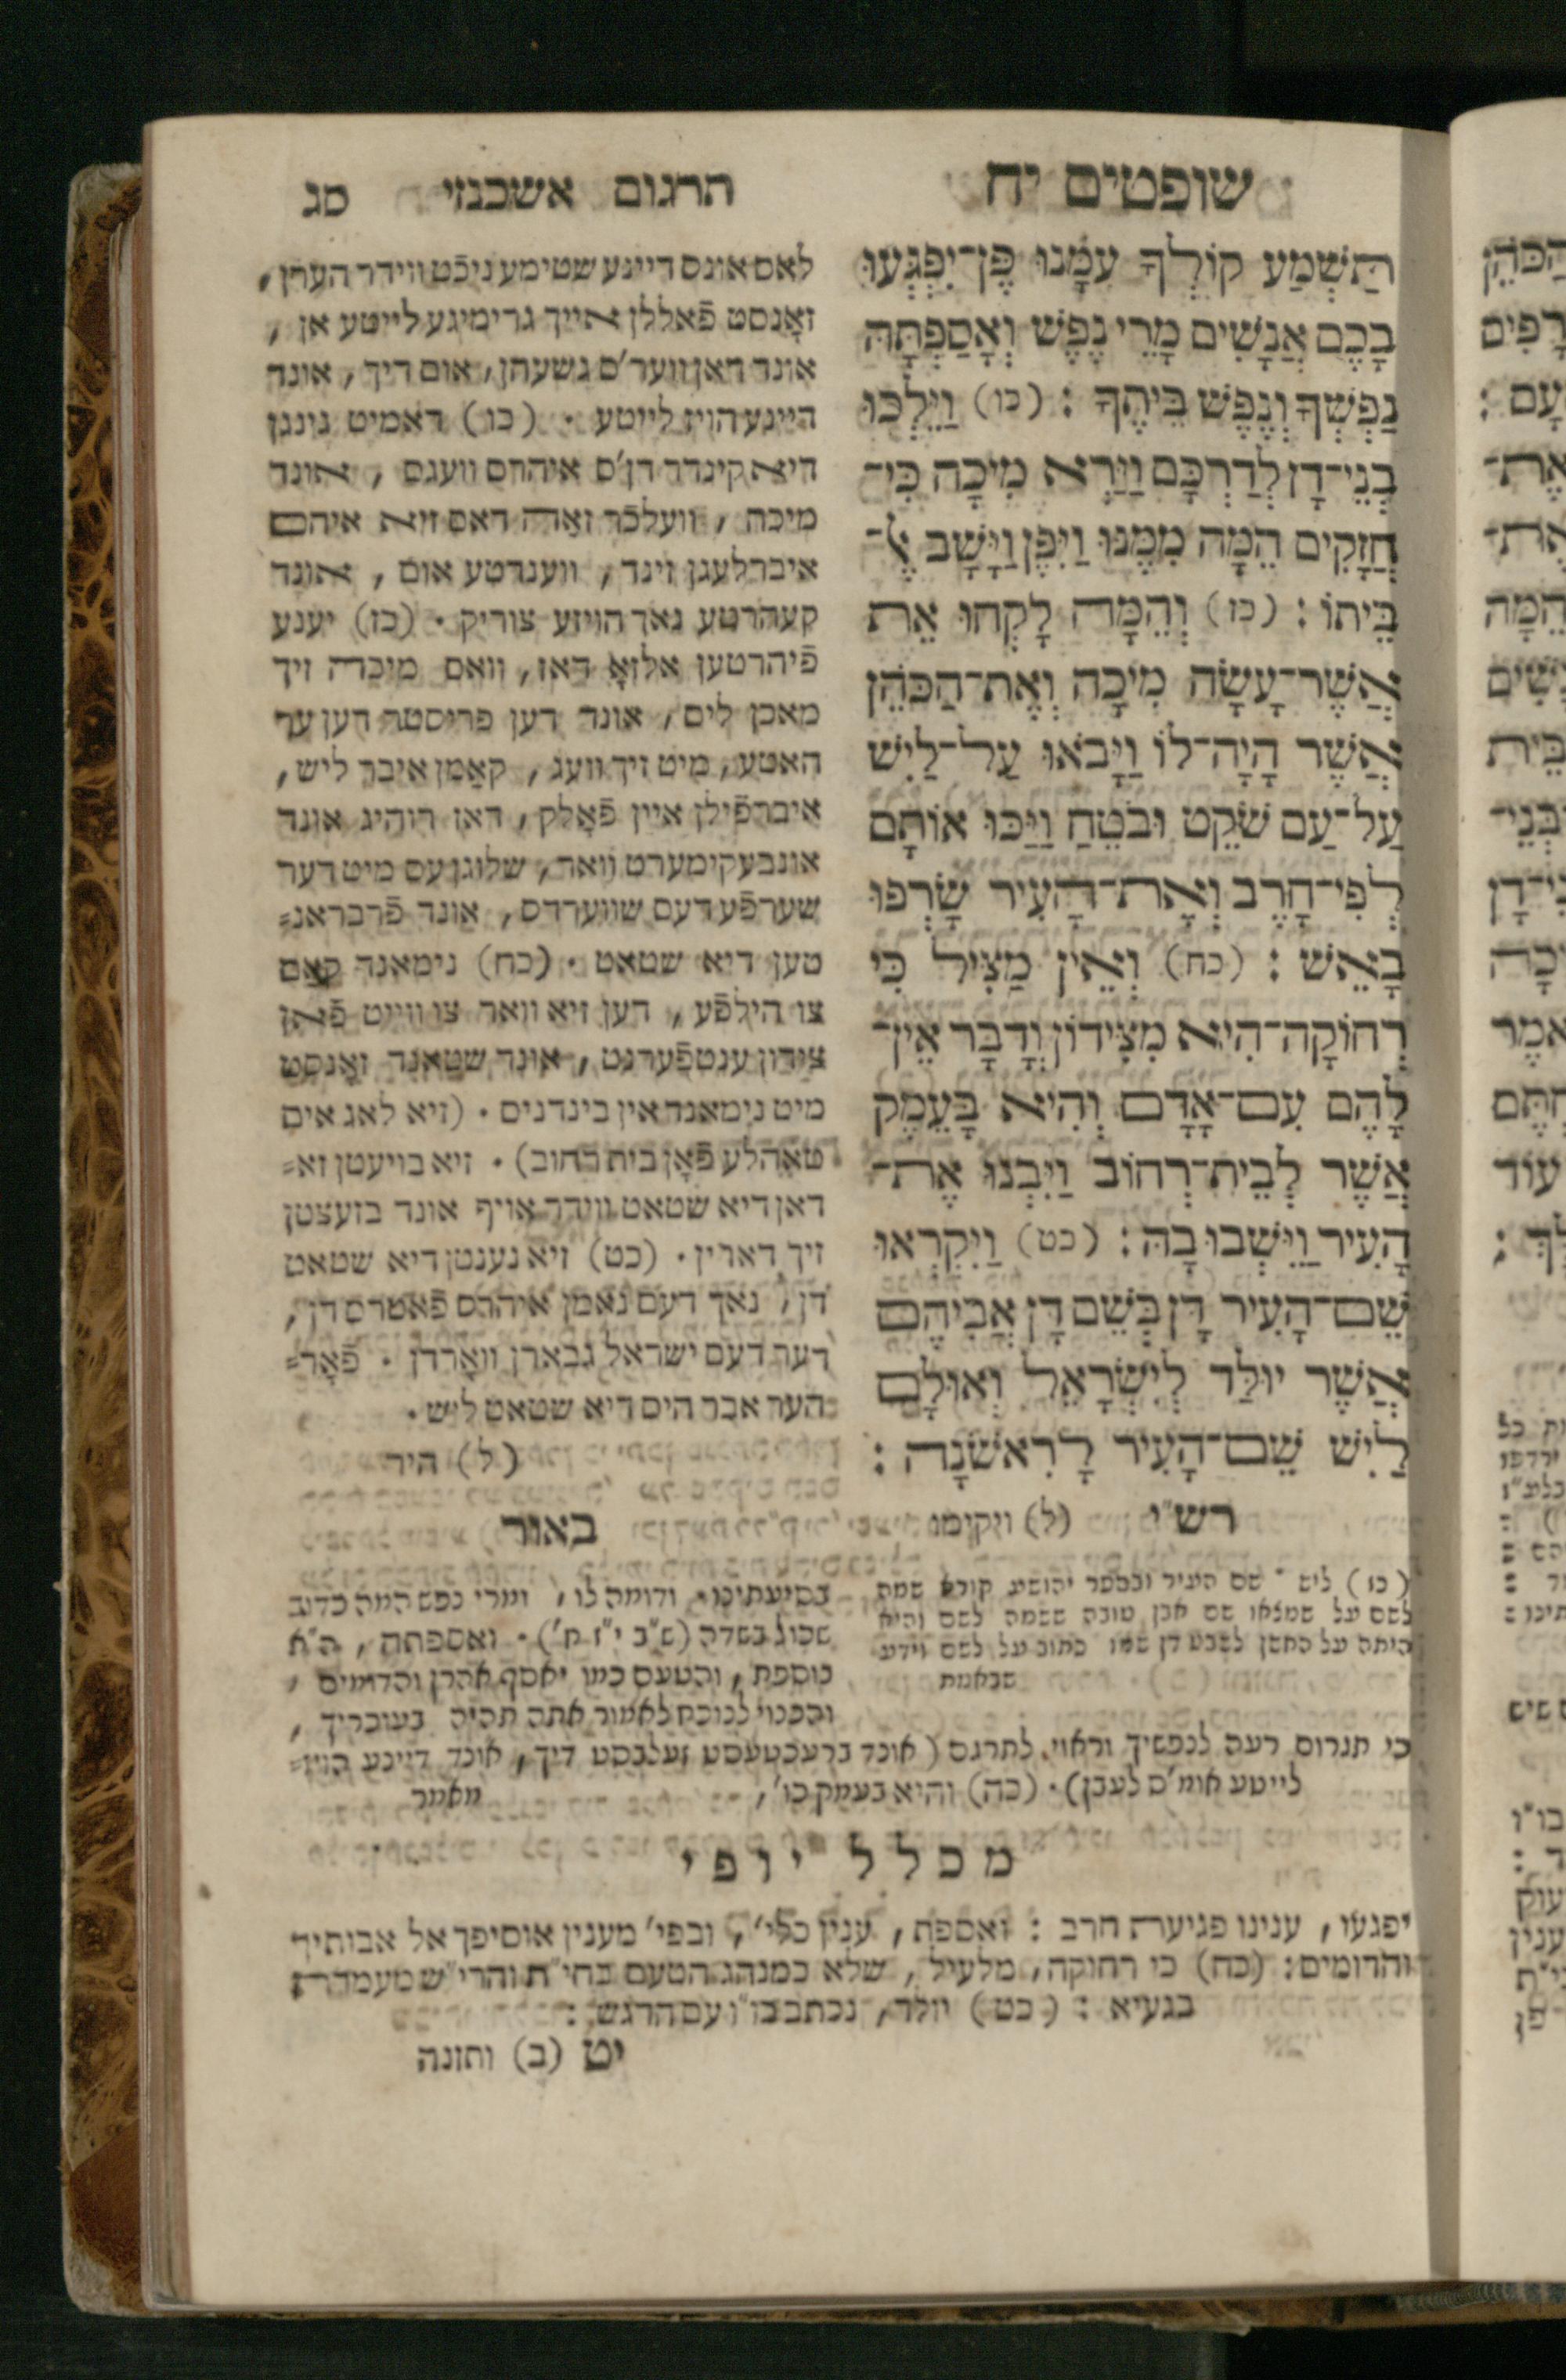 שופטים יח
תרגום אשכנזי סג
תַּשְׁמַע קוֹלְךָ עִמָּנוּ פֶּן־יִפְגְּעוּ
בָכֶם אֲנָשִׁים מָרֵי נֶפֶשׁ וְאָסַפְתָּה
נַפְשְׁךָ וְנֶפֶשׁ בֵּיתֶךָ : (כו) וַיֵּלְכוּ
בְנֵי־דָן לְדַרְכָּם וַיַּרְא מִיכָה כִּי־
חֲזָקִים הֵמָּה מִמֶּנּוּ וַיִּפֶן וַיָּשָׁב אֶל־
בֵּיתוֹ : (כז) וְהֵמָּה לָקְחוּ אֵת
אֲשֶׁר־עָשָׂה מִיכָה וְאֶת־הַכֹּהֵן
אֲשֶׁר הָיָה־לוֹ וַיָּבֹאוּ עַל־לַיִשׁ
עַל־עַם שֹׁקֵט וּבֹטֵחַ וַיַּכּוּ אוֹתָם
לְפִי־חָרֶב וְאֶת־הָעִיר שָׂרְפוּ
בָאֵשׁ : (כח) וְאֵין מַצִּיל כִּי
רְחוֹקָה־הִיא מִצִּידוֹן וְדָבָר אֵין־
לָהֶם עִם־אָדָם וְהִיא בָּעֵמֶק
אֲשֶׁר לְבֵית־רְחוֹב וַיִּבְנוּ אֶת־
הָעִיר וַיֵּשְׁבוּ בָהּ : (כט) וַיִּקְרְאוּ
שֵׁם־הָעִיר דָּן בְּשֵׁם דָּן אֲבִיהֶם
אֲשֶׁר יוּלַּד לְיִשְׂרָאֵל וְאוּלָם
לַיִשׁ שֵׁם־הָעִיר לָרִאשֹׁנָה :
לאס אונס דיינע שטימע ניכֿט ווידר הערן,
זאָנסט פֿאללן אייך גרימיגע לייטע אן,
אונד דאן ווער'ס געשעהן, אום דיך, אונד
דיינע הויז לייטע . (כו) דאמיט גינגן
דיא קינדר דן'ס איהרס וועגס, אונד
מיכה, וועלכֿר זאַה דאס זיא איהם
איברלעגן זינד, ווענדטע אום, אונד
קעהרטע נאך הויזע צוריק. (כז) יענע
פֿיהרטען אלזאָ דאז, וואס מיכה זיך
מאכן ליס, אונד דען פריסטר דען ער
האטע, מיט זיך וועג, קאַמן איבר ליש,
איברפֿילן איין פֿאָלק, דאז רוהיג אונד
אונבעקימערט וואר, שלוגן עס מיט דער
שערפֿע דעס שווערדס, אונד פֿרבראנ=
טען דיא שטאט. (כח) נימאנד קאַם
צו הילפֿע, דען זיא וואר צו ווייט פֿאָן
צידון ענטפֿערנט, אונד שטאנד זאָנסט
מיט נימאנד אין בינדניס. (זיא לאג אים
טאָהלע פֿאָן בית רחוב). זיא בויעטן זא=
דאן דיא שטאט ווידר אויף אונד בזעצטן
זיך דארין. (כט) זיא נענטן דיא שטאט
דן, נאך דעם נאמן איהרס פֿאטרס דן,
דער דעם ישראל געבארן וואָרדן. פֿאָר=
הער אבר היס דיא שטאט ליש.
(ל) היר
רש״י (ל) ויקימו
(כז) ליש שם העיר ובספר יהושע קורא שמה
לשם על שמצאו שם אבן טובה ששמה לשם והיא
היתה על החשן לשבט דן שמו כתוב על לשם וידע
שבאמת
באור
בסיעתינו. ודומה לו, ומרי נפש המה כדוב
שכול בשדה (ש״ב י״ז ח'). ואספתה, ה״א
נוספת, והטעם כמו יאסף אהרן והדומים,
והכנוי לנוכח לאמור אתה תהיה בעוכריך,
כי תגרום רעה לנפשיך וראוי לתרגם (אונד ברעכטעסט זעלבסט דיך, אונד דיינע הויז=
לייטע אומ'ס לעבן). (כה) והיא בעמק כו', מאמר
מכלל יופי
יפגעו, ענינו פגיעת חרב : ואספת, ענין כלי', ובפי' מענין אוסיפך אל אבותיך
והדומים: (כח) כי רחוקה, מלעיל, שלא כמנהג הטעם בחי״ת והרי״ש מעמדת
בגעיא : (כט) יולד, נכתב בו״ו עם הדגש :
יט (ב) ותזנה